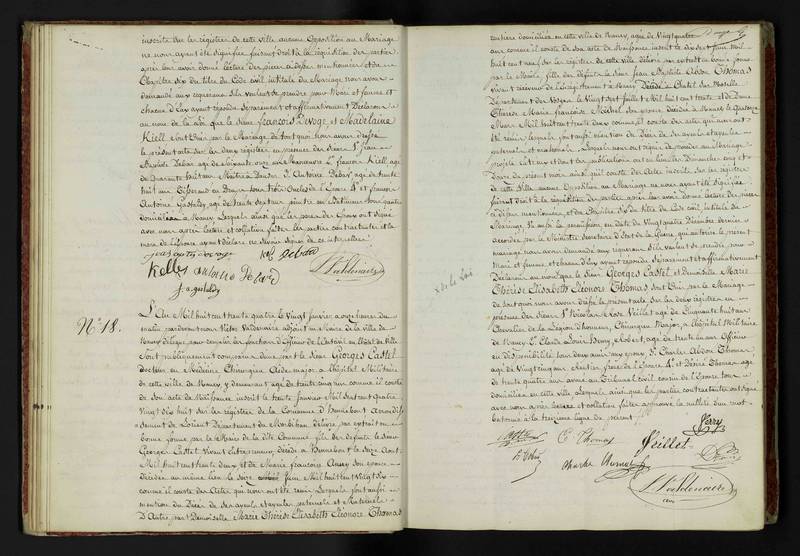 inscrite sur les registres de cette ville aucune Opposition au Mariage
ne nous ayant été signifiée faisant droit à la réquisition des parties
après leur avoir donné lecture des pièces ci-dessus mentionnées et du
Chapitre six du titre du Code civil intitulé du Mariage nous avons
demandé aux s'ils veulent se prendre pour Mari et femme et
chacun d'eux ayant répondu séparément et affirmativement Déclarons
au nom de la loi que le Sieur François Devoge et Madelaine
Kiell sont Unis par le Mariage de tout quoi nous avons dressé
le présent acte sur les deux registres en présence des Sieurs 1° Jean
Baptiste Debar agé de soixante onze ans Manœuvre 2° François Kiell, agé
de quarante huit ans Maître à Danser 3° Antoine Debar agé de trente
huit ans Tisserand 4° et François
Antoine Gastaldy agé de trente sept ans peintre en Bâtimens tous quatre
domiciliés à Nancy Lesquels ainsi que les époux ont signé
avec nous après lecture et collation faites les parties contractantes et la
mère de l'épouse ayant déclaré ne savoir signer de ce interpellées
Kelle antoine Debard
N° 18.
L'An Mil huit cent trente quatre le Vingt février à onze heures du
matin, pardevant nous Victor Valdenaire adjoint au Maire de la ville de
Nancy délégué pour remplir les fonctions d'Officier de l'état civil en l'hôtel de Ville
sont publiquement comparus d'une part le Sieur Georges Castel
Docteur en Médecine Chirurgien Aide major à l'hôpital Militaire
de cette ville de Nancy, y demeurant agé de trente cinq ans comme il conste
de son acte de Naissance inscrit le trente Janvier Mil Sept cent quatre
Vingt dix huit sur les registres de la Commune d'Hennebont Arrondis-
sement de Lorient Département du Morbihan délivré par extrait en
bonne forme par le Maire de la dite Commune fils de défunts le Sieur
Georges Castel Vivant Entrepreneur, décédé à Hennebont le Onze Aout
Mil huit cent trente deux et de Marie françoise son épouse
décédée au même lieu le Sept Juin Mil huit cent Vingt dix
comme il conste des Actes qui nous ont été remis Lesquels font aussi
mention du Décès de ses ayeuls et ayeules paternels et Maternels
D'Autre part Demoiselle Marie Thérèse Elisabeth Eléonore Thomas
rentière domiciliée en cette ville de Nancy, agée de Vingt quatre
ans comme il conste de son acte de Naissance inscrit le dix Sept Juin Mil
huit cent neuf sur les registres de cette ville délivré par extrait en bonne forme
par le Maire, fille des défunts le Sieur Jean Baptiste Abdon Thomas
Vivant receveur de l'enregistrement à Nancy Décédé à Chatel sur Moselle
Département des Vosges le Vingt Sept Juillet Mil huit cent trente et de Dame
Thérèse Marie Françoise Michel son épouse, décédée à Nancy le quatorze
Mars Mil huit cent trente deux comme il conste des actes qui nous ont
été remis lesquels font aussi mention du Décès de ses ayeuls et ayeules
paternels et maternels. Lesquels nous ont requis de procéder au Mariage
projeté entr'eux et dont les publications ont eu lieu les Dimanches cinq et
Douze du présent mois ainsi qu'il conste des Actes inscrits sur les registres
de cette Ville aucune Opposition au Mariage ne nous ayant été signifiée,
faisant droit à la réquisition des parties après leur avoir donné lecture des pièces
ci dessus mentionnées, et du Chapitre Six du titre du Code civil intitulé du
Mariage, Vu aussi la permission en date du Vingt quatre Décembre dernier
accordée par le Ministre Secrétaire d'Etat de la Guerre, qui autorise le présent
mariage nous avons demandé aux s'ils veulent se prendre pour
Mari et femme, et chacun d'eux ayant répondu séparément et affirmativement
Déclarons au nom que le Sieur Georges Castel et Demoiselle Marie
Thérèse Elisabeth Eléonore Thomas sont Unis par le Mariage
de tout quoi nous avons dressé le présent acte Sur les deux registres en
présence des Sieurs 1° Nicolas Rose Veillet agé de Cinquante huit ans
Chevalier de la Légion d'honneur, Chirurgien Major, à l'hôpital Militaire
de Nancy 2° Claude Louis Remy Robert, agé de trente huit ans Officier
en disponibilité tous deux amis des époux 3° Charles Abdon Thomas
agé de Vingt cinq ans rentier frère de l'Epouse 4° et Désiré Thomas agé
de trente quatre ans avoué au Tribunal civil cousin de l'Epouse tous
domiciliés en cette ville Lesquels ainsi que les parties contractantes ont signé
avec nous après lecture et collation faites approuvé la nullité d'un mot
batonné à la treizième ligne du présent
x de la Loi
C Thomas Veillet Ferry
Charles